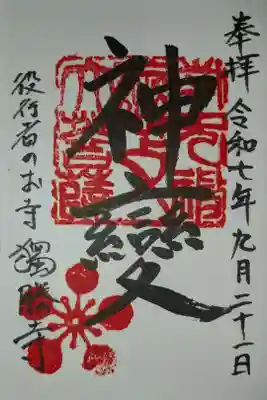 奉拝 令和七年九月二十一日
神變
役行者のお寺 勝寺
大菩薩